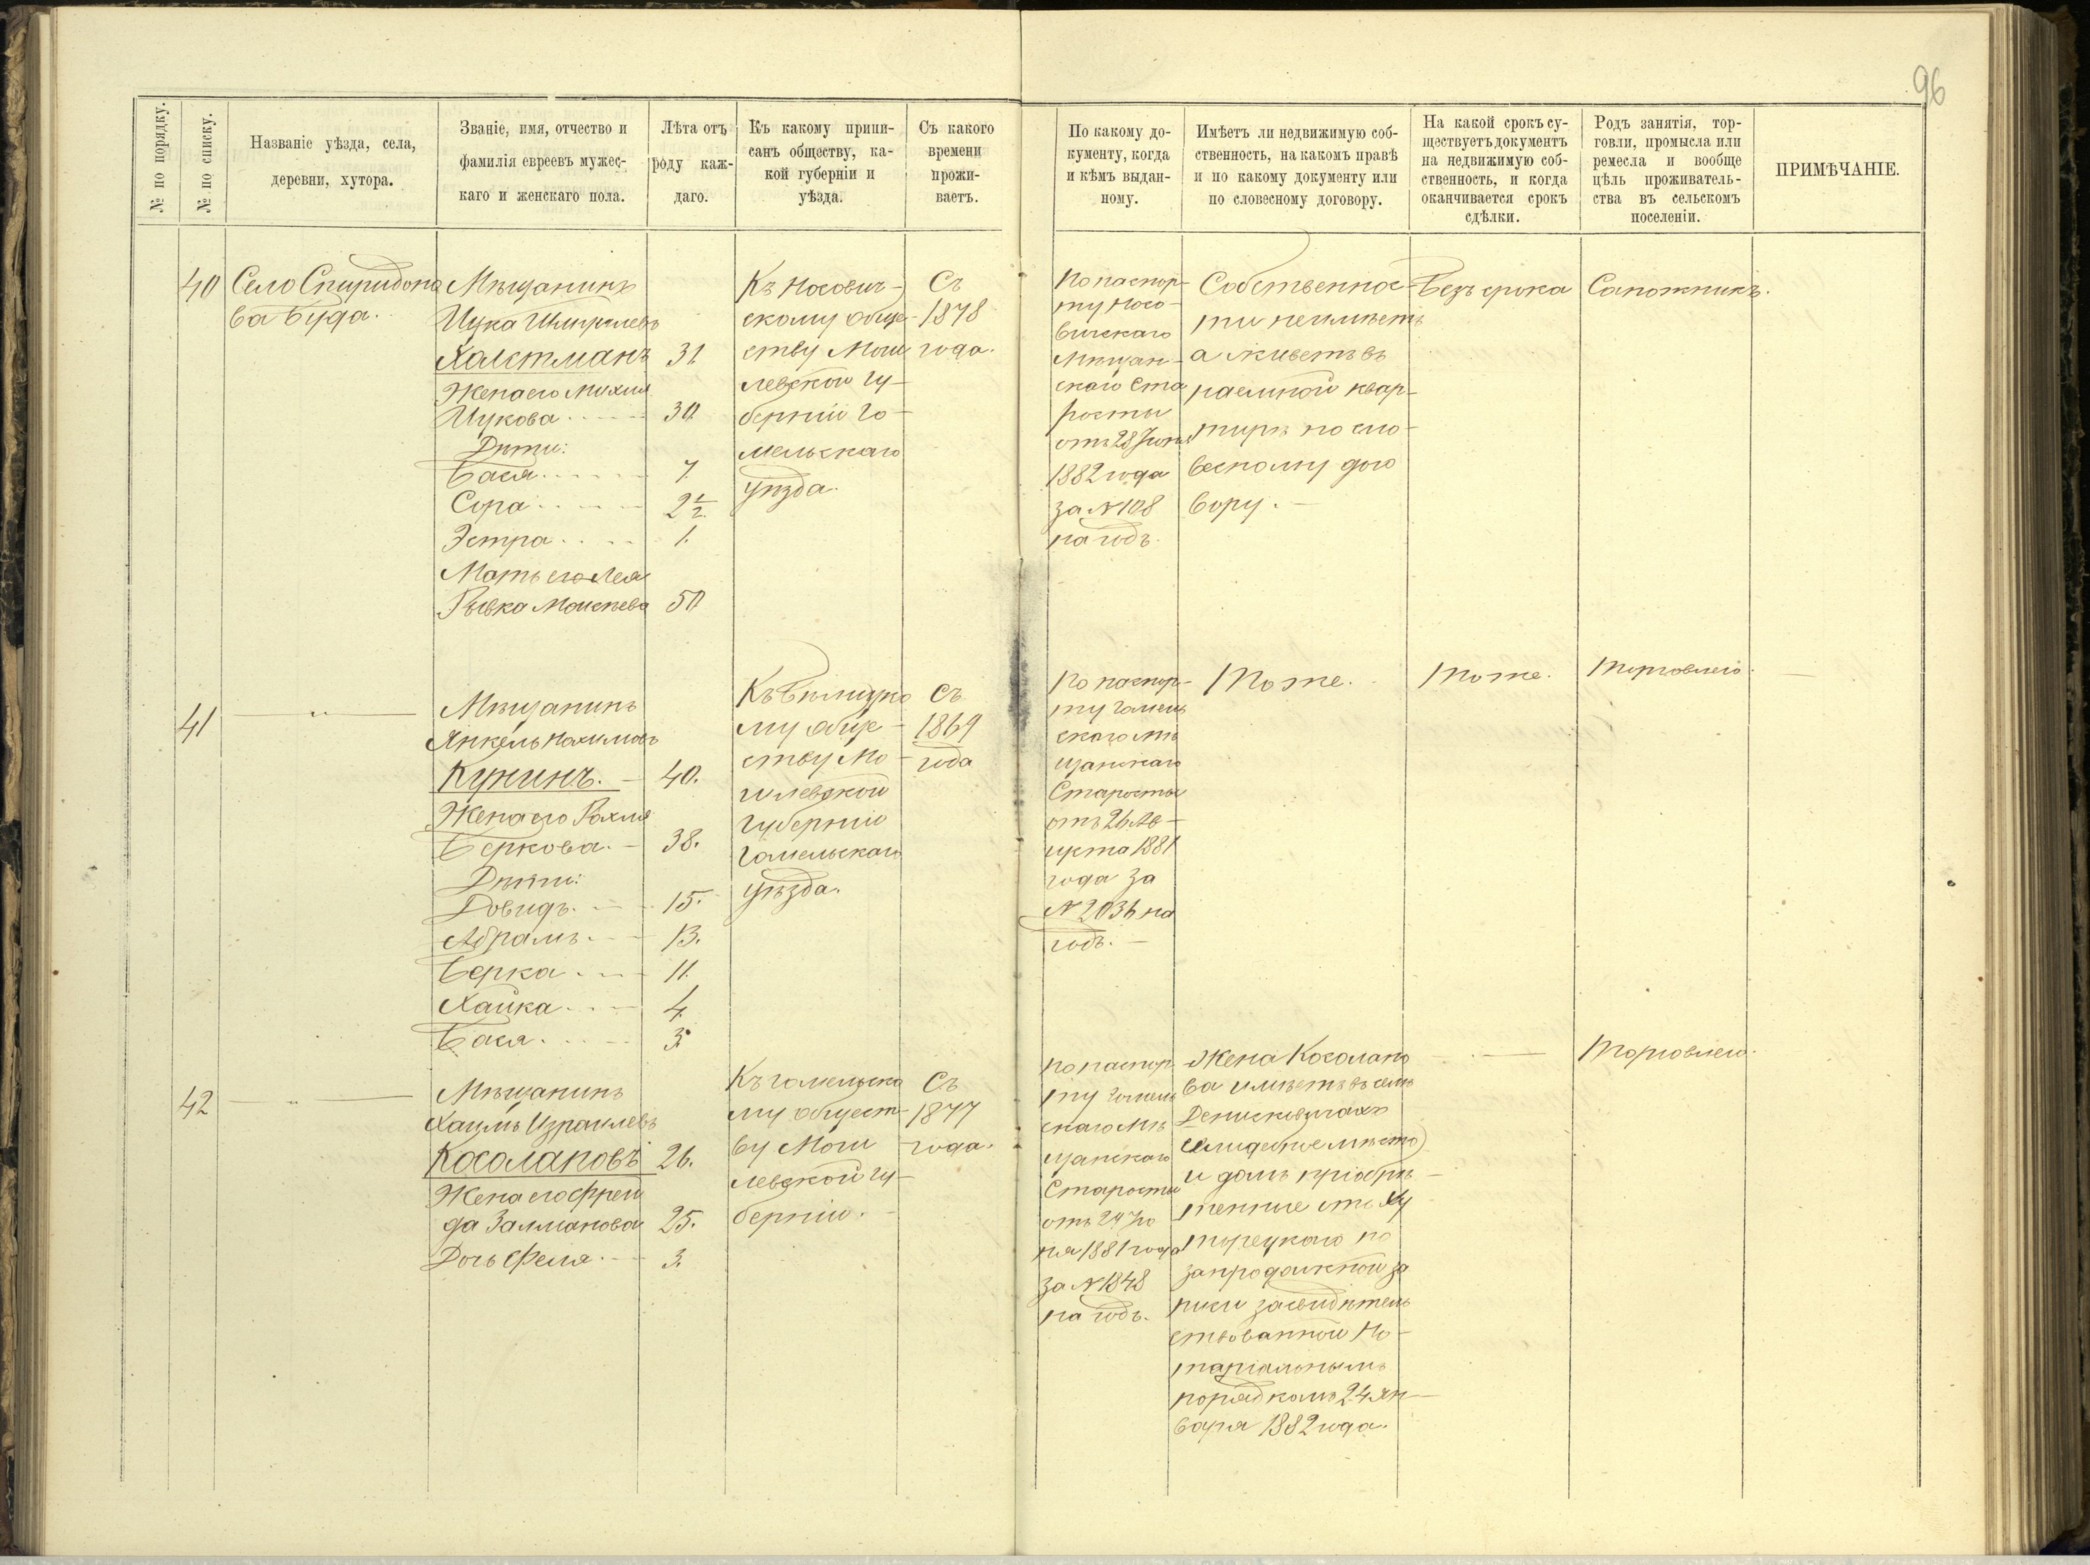 96
№ по порядку.
№ по списку.
Названіе уѣзда, села,
деревни, хутора.
Званіе, имя, отчество и
фамилія евреевъ мужес-
каго и женскаго пола.
Лѣта отъ
роду каж-
даго.
Къ какому припи-
санъ обществу, ка-
кой губерніи и
уѣзда.
Съ какого
времени
прожи-
ваетъ.
По какому до-
кументу, когда
и кѣмъ выдан-
ному.
Имѣетъ ли недвижимую соб-
ственность, на какомъ правѣ
и по какому документу или
по словесному договору.
На какой срокъ су-
ществуетъ документъ
на недвижимую соб-
ственность, и когда
оканчивается срокъ
сдѣлки.
Родъ занятія, тор-
говли, промысла или
ремесла и вообще
цѣль проживатель-
ства въ сельскомъ
поселеніи.
ПРИМѢЧАНІЕ.
40
Село Спиридоно
ва Буда.
Мѣщанинъ
Цука Шмуилевъ
Халетманъ 31
Жена его
Цукова 30
Дѣти:
Бася 7
Сора 2 1/2
Эстра 1.
Мать его Лея
Рывка Моисѣева 50
Къ Носович-
скому обще-
ству Моги
левской гу-
берніи Го-
мельскаго
уѣзда.
Съ
1878
года.
По паспор-
ту Носо-
вичскаго
Мѣщан-
скаго Ста
росты
отъ 28 Іюня
1882 года
за № 108
на годъ.
Собственнос-
ти неимѣетъ
а живетъ въ
наемной квар-
тирѣ по сло-
весному дого
вору. —
Безъ срока
Сапожникъ.
41
— " —
Мѣщанинъ
Янкель Нохимовъ
Кунинъ. — 40.
Жена его Рохля
Беркова. — 38.
Дѣти:
Довидъ. 15.
Абрамъ. 13.
Берка 11.
Хайка 4.
Бася. 3.
Къ Бѣлицко
му обще-
ству Мо-
гилевской
губерніи
Гомельскаго
уѣзда.
Съ
1869
года
По паспор-
ту Гомель
скаго мѣ
щанскаго
Старосты
отъ 26 Ав-
густа 1881
года за
№ 2036 на
годъ. —
Тоже.
Тоже.
Торговлею.
42
— " —
Мѣщанинъ
Хаимъ Израилевъ
Косолаповъ 26.
Жена его Фреи
да Залманова 25.
Дочь Феля 3.
Къ Гомельско
му общест-
ву Моги
левской гу-
берніи. —
Съ
1877
года.
По паспор
ту Гомель
скаго мѣ
щанскаго
Старосты
отъ 24 Ію
ня 1881 года
за № 1848
на годъ.
Жена Косолапо
ва имѣетъ въ селѣ
Денисковичахъ
селидебное мѣсто
и домъ пріобрѣ-
тенные отъ Ху
торецкаго по
запродажной за
писи засвидѣтель
ствованной Но-
таріальнымъ
порядкомъ 24 Ян-
варя 1882 года.
Торговлею.